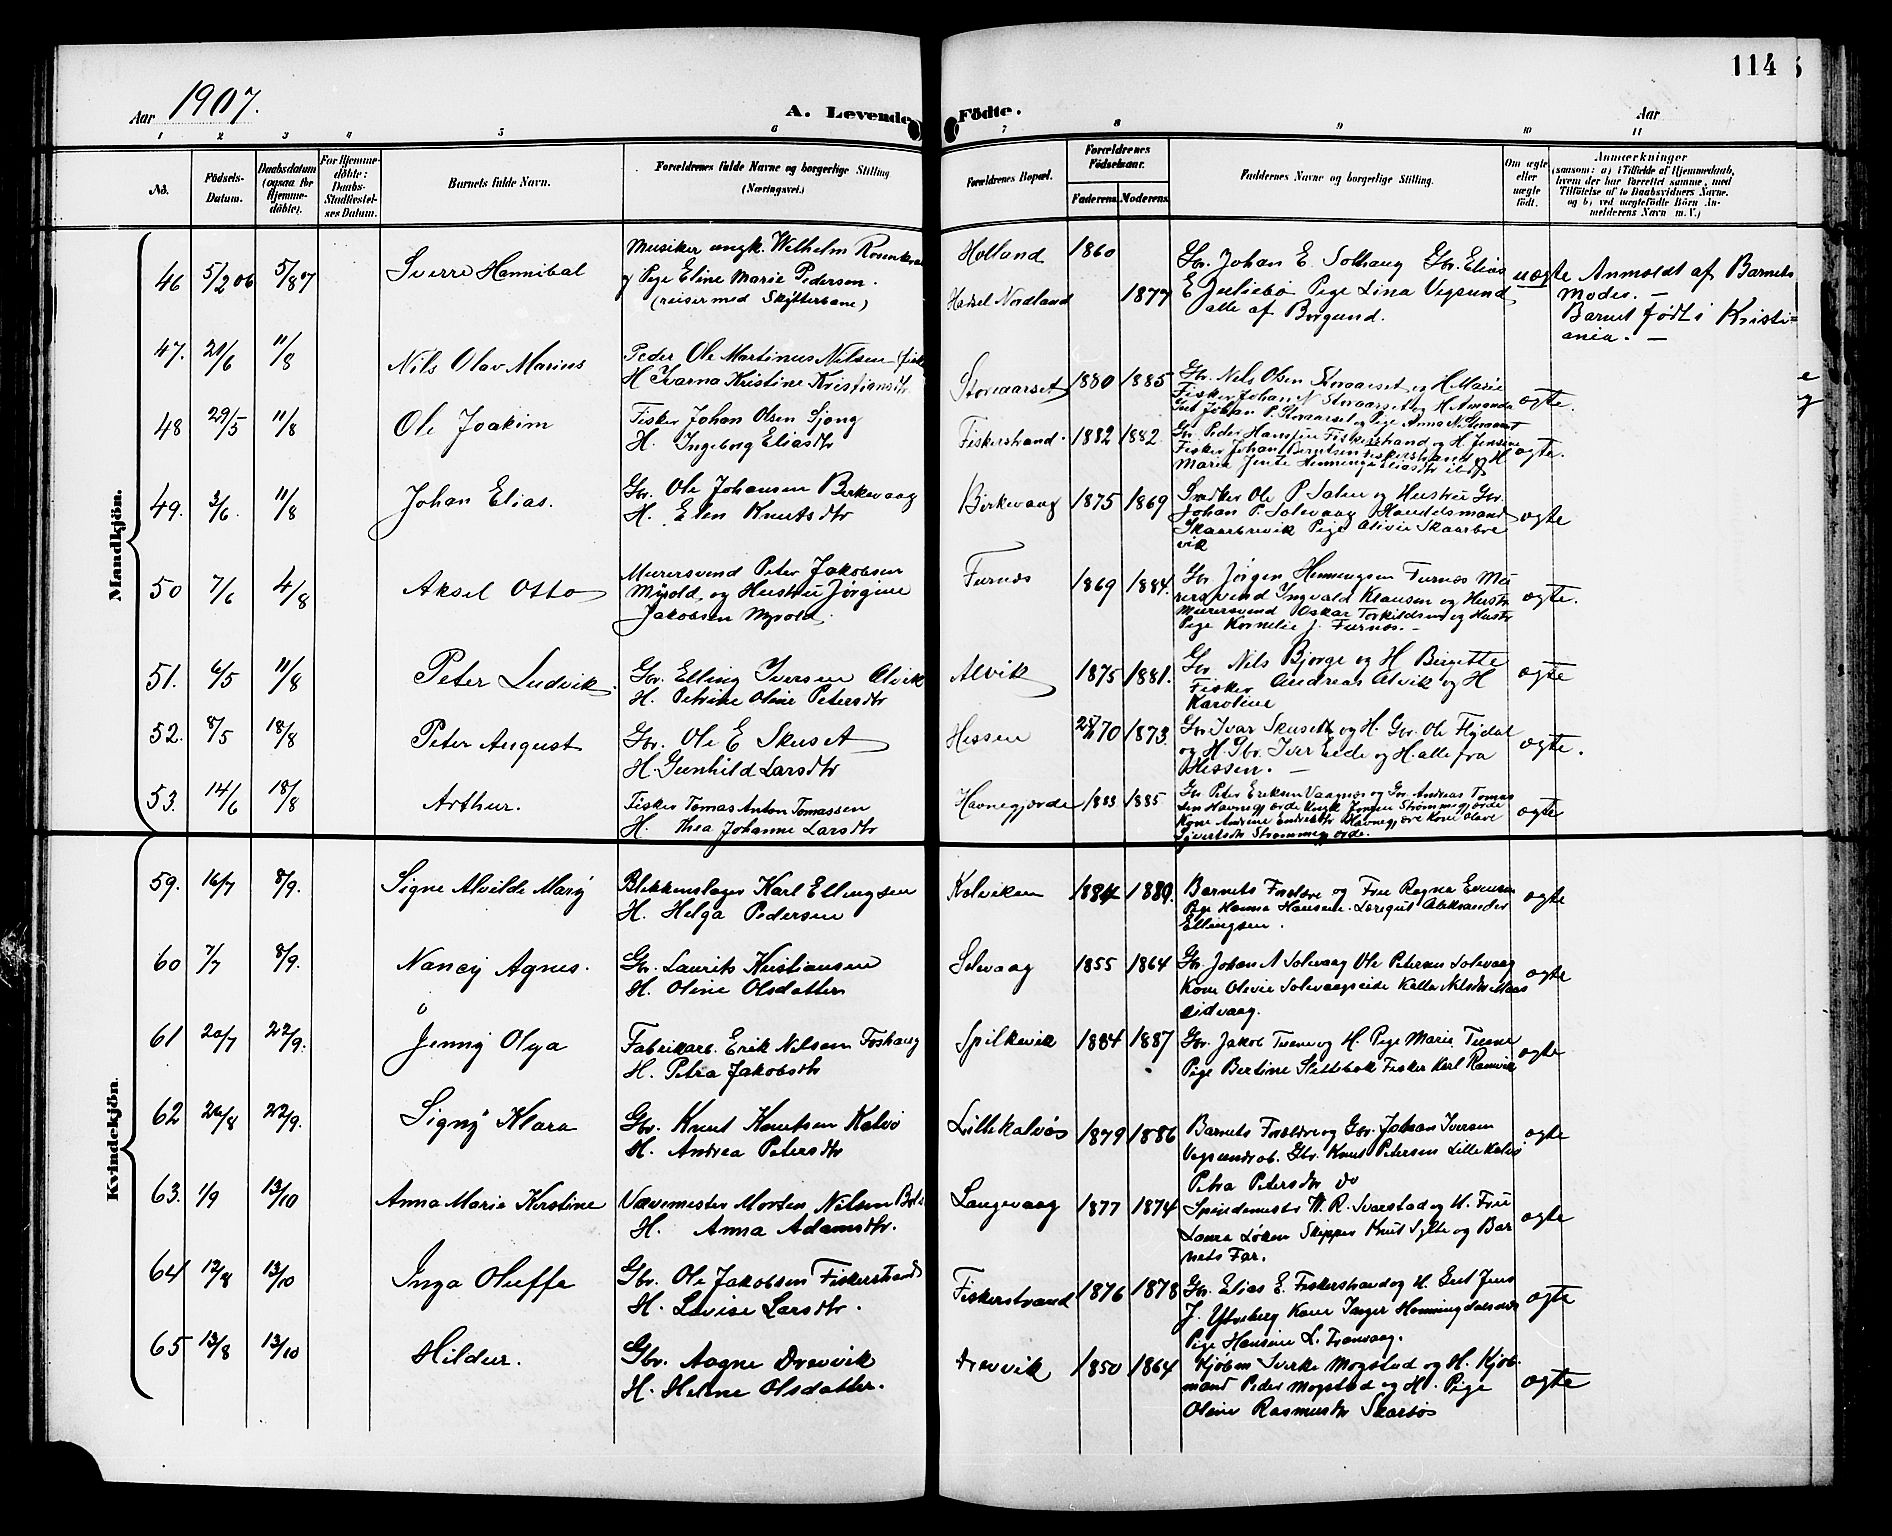 114
Aar 1907.
A. Levende Födte.
Aar
1 2 3 4 5 6 7 8 9 10 11
No. Födsels-Datum. Daabsdatum (ogsaa for Hjemme-döbte). For Hjemme-döbte: Daabs-Stadfæstel-ses Datum. Barnets fulde Navn. Forældrenes fulde Navne og borgerlige Stilling (Næringsvei.) Forældrenes Bopæl. Forældrenes Födselsaar. Faderens Moderens Faddernes Navne og borgerlige Stilling. Om ægte eller uægte födt. Anmærkninger
(saasom: a) i Tilfælde af Hjemmedaab,
hvem der har forrettet samme, med
Tilföielse af to Daabsvidners Navne,
og b) ved uægtefödte Börn An-
melderens Navn m. V.)
Mandkjön.
46 5/2 06 5/8 07 Sverre Hannibal
Musiker ungk. Wilhelm
og Pige Eline Marie Pedersen.
(reiser med Skytterbane)
Holland 1860
Hadsel Nordland 1877
Gbr. Johan E. Solhaug Gbr. Elias
E Juliebø Pige Lina Vegsund
alle af Borgund.
uægte
Anmeldt af Barnets
Moder. —
Barnet født i Kristi=
ania. —
47. 21/6 11/8 Nils Olav Marius
Peder Ole Martinus Nilsen
H Ivarna Kristine Kristiansdtr
Storaarset 1880 1885
Gbr. Nils Olsen Storaarset og H Marie
Fisker Johan N Storaarset og H Amanda
Gut Johan P. Storaarset og Pige Anna N Storaarset
ægte.
48 29/5 11/8 Ole Joakim
Fisker Johan Olsen Sjong
H. Ingeborg Eliasdtr
Fiskerstrand. 1882 1882.
Gbr. Peder Hansen Fiskerstrand og H. Jensine
Fisker Johan Berntsen Fiskerstrand og H
Marie Jente Henninge Eliasdtr ibd
ægte.
49. 3/6. 11/8 Johan Elias.
Gbr. Ole Johansen Birkevaag
H. Elen Knutsdtr
Birkevaag 1875 1869
Snedker Ole P. Solev og Hustru Gbr.
Johan P. Solevaag Handelsmand
Skaarbrevik Pige Olivie Skaarbre
vik
ægte
50 7/6 4/8 Aksel Otto
Murersvend Peter Jakobsen
Myrold og Hustru Jørgine
Jakobsen Myrold.
Furnes 1869 1884.
Gbr Jørgen Henningsen Furnes Mu
rersvend Ingvald Klausen og Hustr
Murersvend Oskar Torkildsen og Hustr
Pige Kornelie J. Furnes. —
ægte.
51. 6/5 11/8 Peter Ludvik.
Gbr. Elling Iversen Alvik
H. Petrike Oline Petersdtr
Alvik 1875 1881.
Gbr Nils Bjørge og H Birgitte
Fisker Andreas Alvik og H
Karoline
ægte
52. 8/5 18/8 Peter August
Gbr. Ole E Skuset
H. Gunhild Larsdtr
Hessen 70 1873.
Gbr Ivar Skuseth og H. Gbr. Ole Flydal
og H. Gbr. Iver Eide og H. alle fra
Hessen. —
ægte.
53. 14/6 18/8 Arthur.
Fisker Tomas Anton Tomassen
H. Thea Johanne Larsdtr
Havnegjerde 1883 1885.
Gbr Peter Eriksen Vaagnes og Gbr. Andreas Tomas
sen Havnegjerde Ungk Jørgen Strømmegjerde
Kone Andrine Endresdtr Havnegjerde Kone Olave
Sivertsdtr Strømmegjerde.
ægte
Kvindekjön.
59. 16/7 8/9. Signe Alvilde Mary
Blikkenslager Karl Ellingsen
H. Helga Pedersen
Kalviken 1884 1889.
Barnets Forældre og Frue Ragna Evensen
Pige Hanna Hansen. Læregut Aleksander
Ellingsen.
ægte
60 7/7 8/9. Nancy Agnes.
Gbr. Laurits Kristiansen
H. Oline Olsdatter
Solevaag 1855 1864
Gbr. Johan N Solevaag Ole Petersen Solevaag
Kone Olevie Solevaagseide Kalla Nilsdtr Maas
eidvaag.
ægte
61 20/7 22/9. Jenny Olga
Fabrikarb. Erik Nilsen Foshaug
H. Petra Jakobsdtr
Spilkevik 1884 1887
Gbr. Jakob Tuene og H. Pige Marie Tuene
Pige Bertine Slettebak Fisker Karl Ramvik
ægte
62 26/8 22/9. Signy Klara
Gbr. Knut Knutsen Kalvø
H. Andrea Petersdtr
Lillekalvøs 1879 1886
Barnets Forældre og Gbr. Johan Iversen
Vegsund ob. Gbr. Knut Petersen Lillekalvø
Petra Petersdtr do
ægte
63. 1/9 13/10 Anna Marie Kirstine
Vævemester Morten Nilsen
H. Anna Adamsdtr.
Langevaag 1877 1874
Spindemester W. R. Svarstad og H. Frue
Laura Løken Skipper Knut Sylte og Bar
nets Far.
ægte
64 12/8 13/10 Inga Oluffa
Gbr. Ole Jakobsen Fiskerstrand
H. Lovise Larsdtr.
Fiskerstrand 1876 1878
Gbr. Elias E. Fiskerstrand og H. Gut Jens
J. Ytreberg Kone Inger Honningdalsnes
Pige Hansine L. Tranvaag.
ægte
65 13/8 13/10 Hildur.
Gbr. Aagne Drevvik
H. Heline Olsdatter.
Drevvik 1850 1864
Kjøbm Sverke Mogstad og H. Kjøb
mand Peder Mogstad og H. Pige
Oline Rasmusdtr Skarbøs
ægte